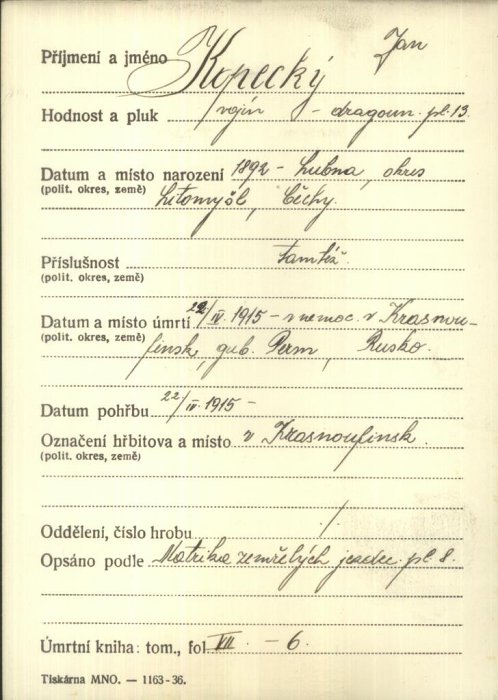 Příjmení a jméno Kopecký Jan
Hodnost a pluk vojín - dragoun. pl. 13.
Datum a místo narození 1892 - Lubna, okres
(polit. okres, země) Litomyšl, Čechy.
Příslušnost Tamtéž.
(polit. okres, země)
Datum a místo úmrtí 22/IV. 1915 - v nemoc. v Krasnou-
(polit. okres, země) finsk, gub. Perm, Rusko.
Datum pohřbu 22/IV. 1915 -
Označení hřbitova a místo v Krasnoufinsk.
(polit. okres, země)
Oddělení, číslo hrobu /.
Opsáno podle Matrika zemřelých jezdec. pl. 8.
Úmrtní kniha: tom., fol VII. - 6.
Tiskárna MNO. — 1163-36.